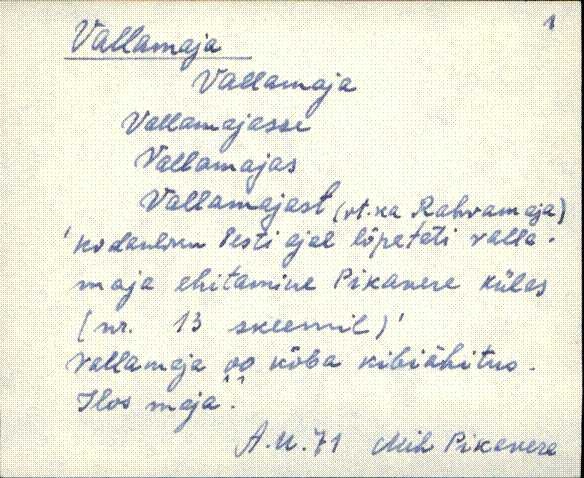 1
Vallamaja
Vallamaja
Vallamajasse
Vallamajas
Vallamajast (vt. ka Rahvamaja)
'kodanliku Eesti ajal lõpetati valla-
maja ehitamine Pikavere külas
(nr. 13 skeemil)'
vallamaja oo kõba kibiähitus.
Ilos maja.
A.U. 71 Mih Pikavere